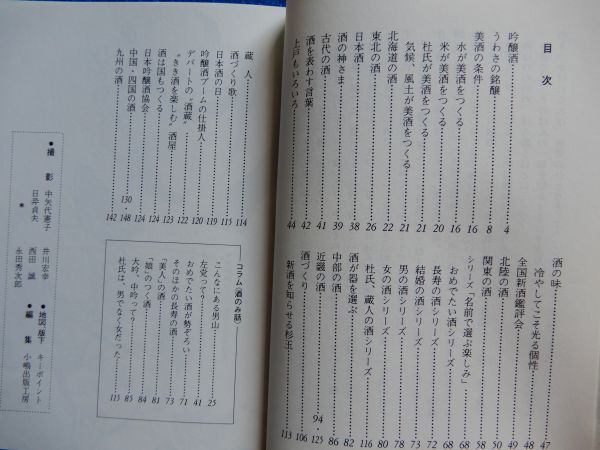 目次
吟醸酒……4
うわさの銘醸……8
美酒の条件……16
水が美酒をつくる……16
米が美酒をつくる……20
杜氏が美酒をつくる……21
気候、風土が美酒をつくる……21
北海道の酒……22
東北の酒……26
日本酒……38
酒の神さま……39
古代の酒……41
酒を表わす言葉……42
上戸もいろいろ……44
酒の味……47
冷やしてこそ光る個性……48
全国新酒鑑評会……49
北陸の酒……50
関東の酒……58
シリーズ「名前で選ぶ楽しみ」……68
おめでたい酒シリーズ……68
長寿の酒シリーズ……72
結婚の酒シリーズ……73
男の酒シリーズ……78
女の酒シリーズ……80
杜氏、蔵人の酒シリーズ……116
酒が器を選ぶ……82
中部の酒……86
近畿の酒……94・125
酒づくり……106
新酒を知らせる杉玉……113
蔵人……114
酒づくり歌……115
日本酒の日……119
吟醸酒ブームの仕掛人……120
デパートの“酒蔵”……122
“きき酒を楽しむ”酒屋……123
酒は国もつくる……124
日本吟醸酒協会……124
中国・四国の酒……130・148
九州の酒……142
「コラム 酒のみ話」
こんなにある男山……25
左党って?……41
おめでたい酒が勢ぞろい……71
そのほかの長寿の酒……73
「美人」の酒……81
「娘」のつく酒……84
大吟、中吟って?……85
杜氏は、男でなく女だった……115
●撮影 中矢代憲子 井川宏幸 ●地図・版下 キーポイント
臼井貞夫 西田誠 ●編集 小嶋出版工房
* 永田秀次郎